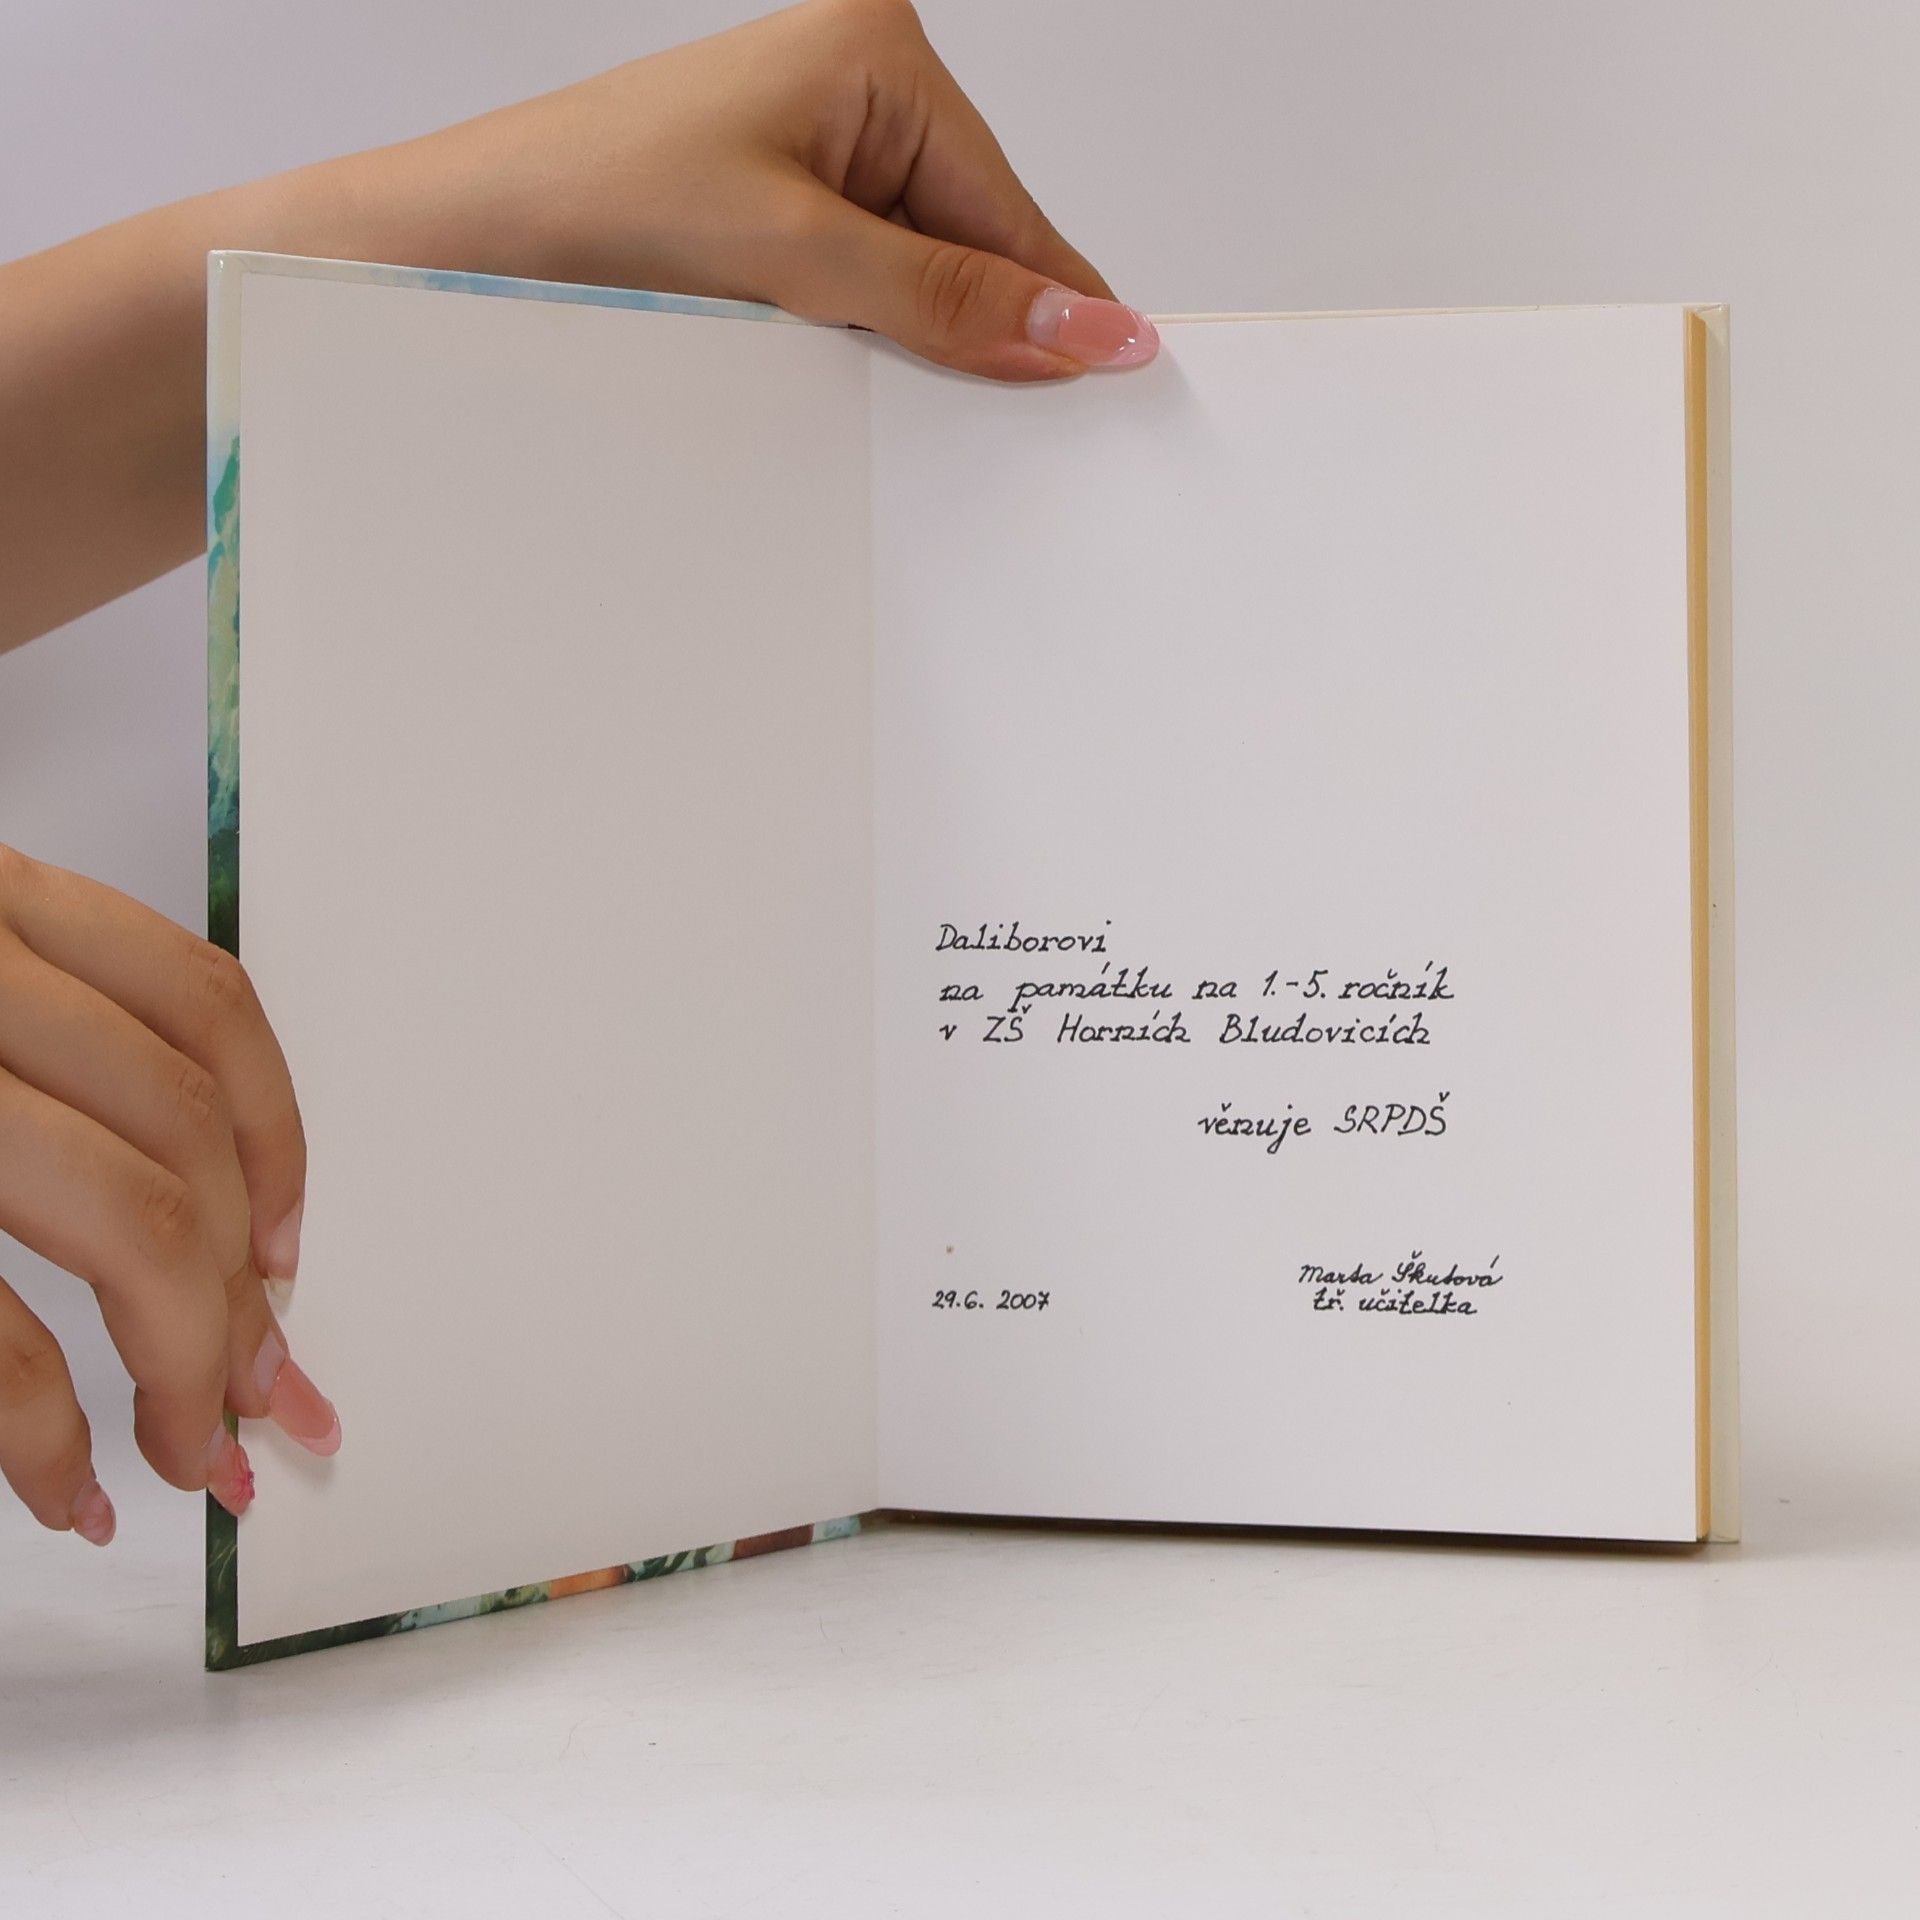 Daliborovi
na památku na 1.-5. ročník
v ZŠ Horních Bludovicích
věnuje SRPDŠ
Marta Škutová
29.6. 2007 tř. učitelka